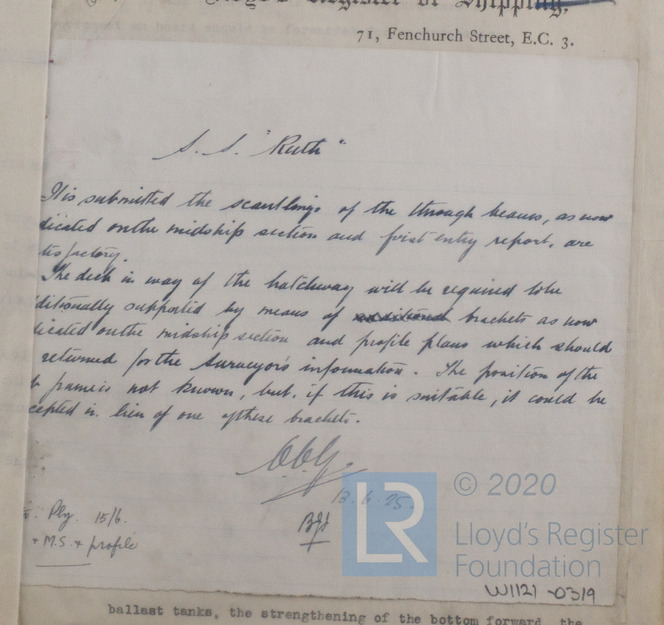 Lloyd's Register of Shipping,
71, Fenchurch Street, E.C. 3.
S. S. "Ruth"
It is submitted the scantlings of the through beams, as now
dicated on the midship section and first entry report, are
tisfactory.
The deck in way of the hatchway will be required to be
ditionally supported by means of additional brackets as now
dicated on the midship section and profile plans which should
returned for the Surveyor's information. The position of the
frame is not known, but, if this is suitable, it could be
cepted in lieu of one of these brackets.
13.6.25.
Ply. 15/6.
+ M.S. + profile
LR
© 2020
Lloyd's Register
Foundation
W1121-0319
ballast tanks, the strengthening of the bottom forward, the